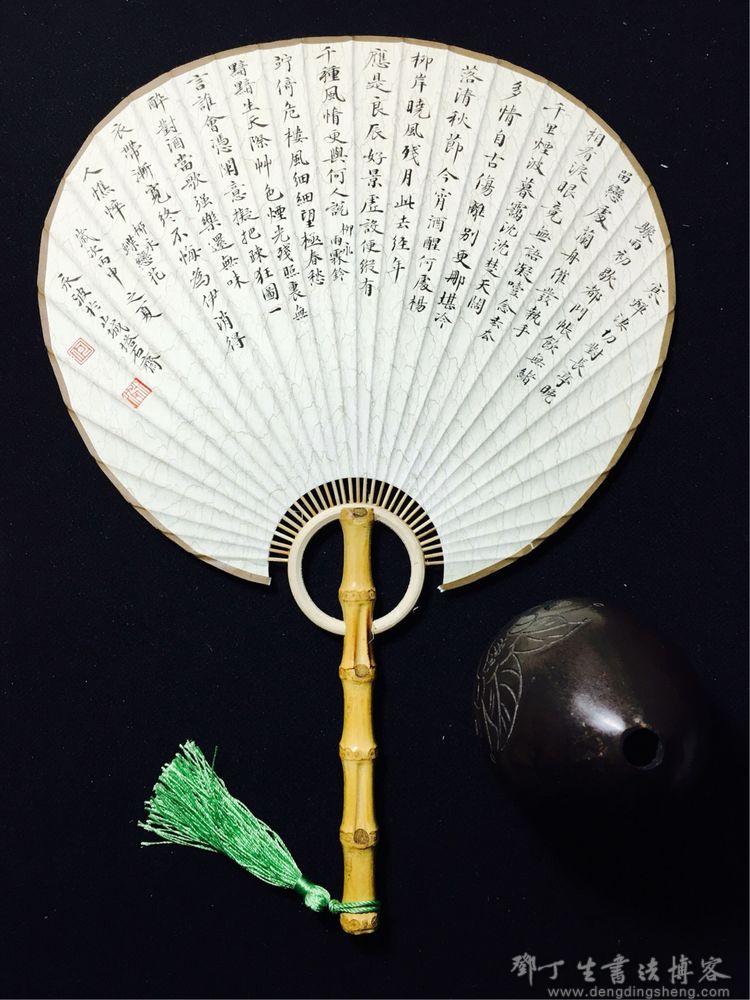 寒蟬淒切對長亭晚
驟雨初歇都門帳飲無緒
留戀處蘭舟催發執手
相看淚眼竟無語凝噎念去去
千里煙波暮靄沈沈楚天闊
多情自古傷離別更那堪冷
落清秋節今宵酒醒何處楊
柳岸曉風殘月此去經年
應是良辰好景虛設便縱有
千種風情更與何人說
柳永
雨霖鈴
竚倚危樓風細細望極春愁
黯黯生天際艸色煙光殘照裏無
言誰會憑闌意擬把疎狂圖一
醉對酒當歌強樂還無味
衣帶漸寬終不悔為伊消得
人憔悴
柳永
蝶戀花
歲次丙申之夏
永波於城齋
鄧丁生書法博客
www.dengdingsheng.com